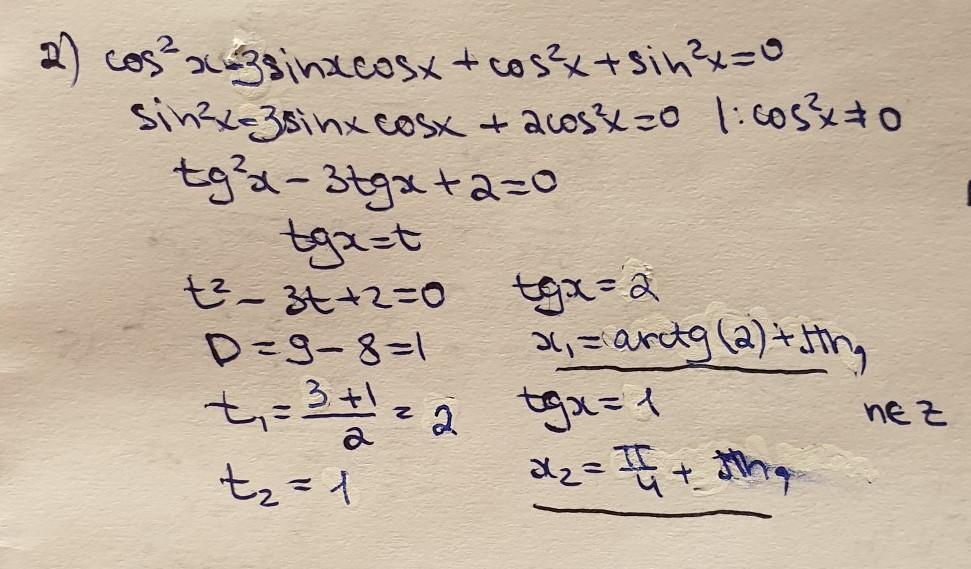 2) cos²x-3sinxcosx+cos²x+sin²x=0
sin²x-3sinxcosx+2cos²x=0 |:cos²x≠0
tg²x-3tgx+2=0
tgx=t
t²-3t+2=0
D=9-8=1
t₁=3+1/2=2
t₂=1
tgx=2
x₁=arctg(2)+πn,
tgx=1
x₂=π/4+πn,
n∈Z